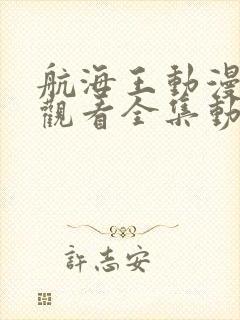 航海王動漫
觀看全集動
許志安